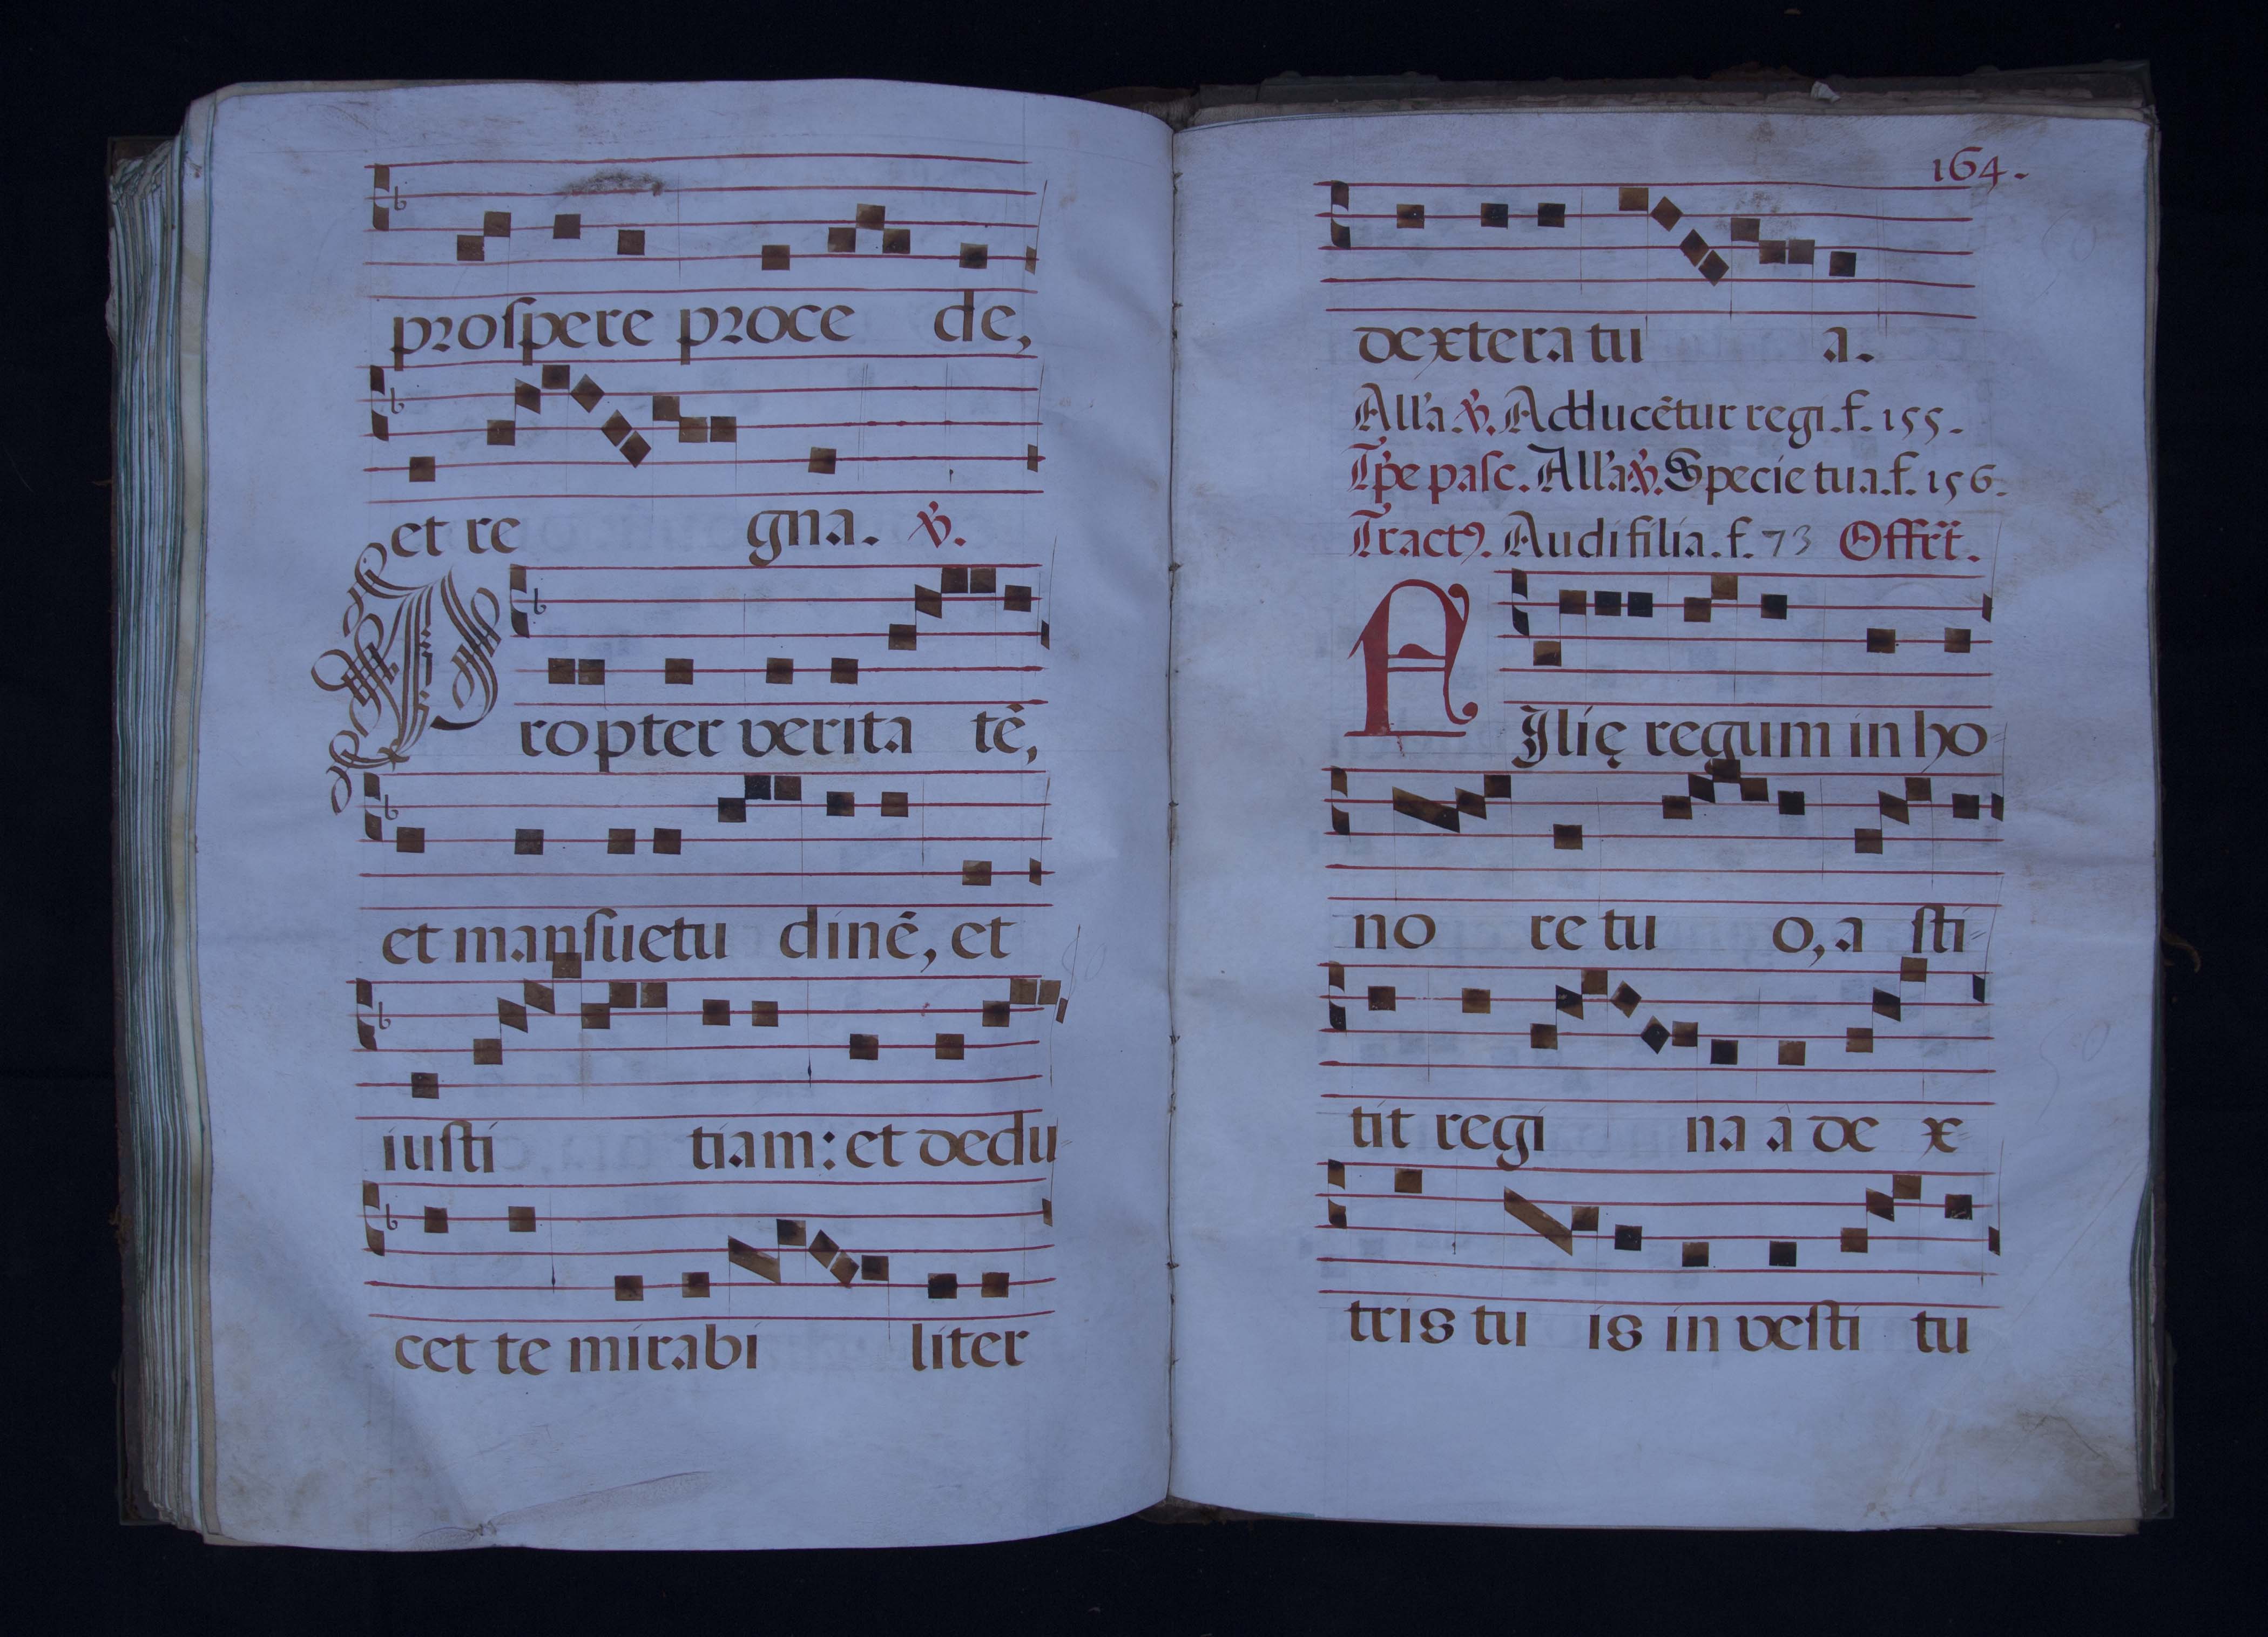 proſpere proce de,
et re gna. ꝟ.
Propter verita tẽ,
et manſuetu dinẽ, et
iuſti tiam: et dedu
cet te mirabi liter
164.
dextera tu a.
All'a ꝟ. Adducẽtur regi. f. 155.
Tp̃e paſc. All'a ꝟ. Specie tua. f. 156.
Tractꝰ. Audi filia. f. 73 Offrt̃.
FIlię regum in ho
no re tu o, a ſti
tit regi na à de x
tris tu is in veſti tu